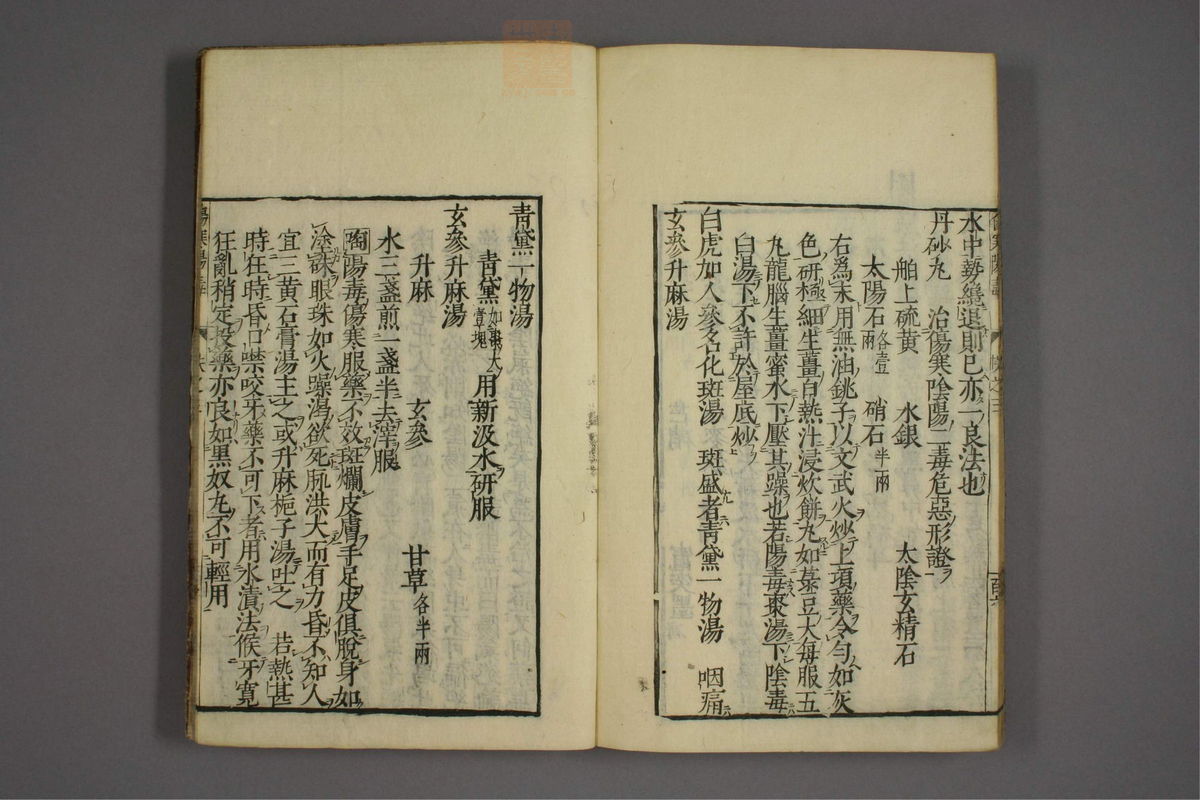 水中勢纔退則已亦一良法也
丹砂丸　治傷寒陰陽二毒危惡形證
舶上硫黄　水銀　太陰玄精石
太陽石各壹兩　硝石半兩
右爲末用無油銚子以文武火炒上項藥令勻如灰
色研極細生薑自然汁浸炊餅丸如菉豆大每服五
丸龍腦生薑蜜水下壓其躁也若陽毒棗湯下陰毒
白湯下不許於屋底炒
白虎加人參名化斑湯　斑盛者青黛一物湯　咽痛
玄參升麻湯
青黛一物湯
青黛如棗大壹塊　用新汲水研服
玄參升麻湯
升麻　玄參　甘草各半兩
水三盞煎一盞半去滓服
陶陽毒傷寒服藥不效斑爛皮膚手足皮俱脫身如
塗硃眼珠如火躁渴欲死脈洪大而有力昏不知人
宜三黄石膏湯主之或升麻梔子湯吐之　若熱甚
時狂時昏口噤咬牙藥不可下者用水漬法候牙寛
狂亂稍定投藥亦良如黒奴丸不可輕用